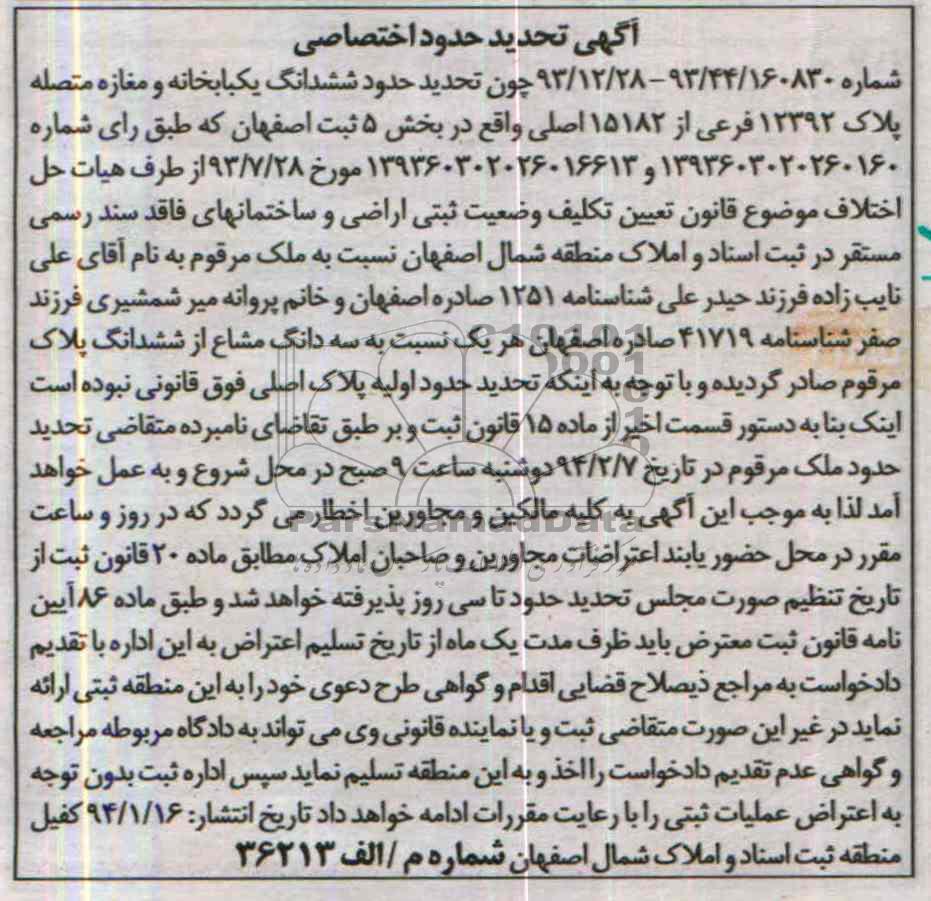 آگهی تحدید حدود اختصاصی
شماره ۹۳/۴۴/۱۶۰۸۳۰ – ۹۳/۱۲/۲۸ چون تحدید حدود ششدانگ یکبابخانه و مغازه متصله
پلاک ۱۲۳۹۲ فرعی از ۱۵۱۸۲ اصلی واقع در بخش ۵ ثبت اصفهان که طبق رای شماره
۱۳۹۳۶۰۳۰۲۰۲۶۰۱۶۰ و ۱۳۹۳۶۰۳۰۲۰۲۶۰۱۶۶۱۳ مورخ ۹۳/۷/۲۸ از طرف هیات حل
اختلاف موضوع قانون تعیین تکلیف وضعیت ثبتی اراضی و ساختمانهای فاقد سند رسمی
مستقر در ثبت اسناد و املاک منطقه شمال اصفهان نسبت به ملک مرقوم به نام آقای علی
نایب زاده فرزند حیدر علی شناسنامه ۱۲۵۱ صادره اصفهان و خانم پروانه میر شمشیری فرزند
صفر شناسنامه ۴۱۷۱۹ صادره اصفهان هر یک نسبت به سه دانگ مشاع از ششدانگ پلاک
مرقوم صادر گردیده و با توجه به اینکه تحدید حدود اولیه پلاک اصلی فوق قانونی نبوده است
اینک بنا به دستور قسمت اخیر از ماده ۱۵ قانون ثبت و بر طبق تقاضای نامبرده متقاضی تحدید
حدود ملک مرقوم در تاریخ ۹۴/۲/۷ دوشنبه ساعت ۹ صبح در محل شروع و به عمل خواهد
آمد لذا به موجب این آگهی به کلیه مالکین و مجاورین اخطار می گردد که در روز و ساعت
مقرر در محل حضور یابند اعتراضات مجاورین و صاحبان املاک مطابق ماده ۲۰ قانون ثبت از
تاریخ تنظیم صورت مجلس تحدید حدود تا سی روز پذیرفته خواهد شد و طبق ماده ۸۶ آیین
نامه قانون ثبت معترض باید ظرف مدت یک ماه از تاریخ تسلیم اعتراض به این اداره با تقدیم
دادخواست به مراجع ذیصلاح قضایی اقدام و گواهی طرح دعوی خود را به این منطقه ثبتی ارائه
نماید در غیر این صورت متقاضی ثبت و یا نماینده قانونی وی می تواند به دادگاه مربوطه مراجعه
و گواهی عدم تقدیم دادخواست را اخذ و به این منطقه تسلیم نماید سپس اداره ثبت بدون توجه
به اعتراض عملیات ثبتی را با رعایت مقررات ادامه خواهد داد تاریخ انتشار: ۹۴/۱/۱۶ کفیل
منطقه ثبت اسناد و املاک شمال اصفهان شماره م / الف ۳۶۲۱۳
ParsNamadData